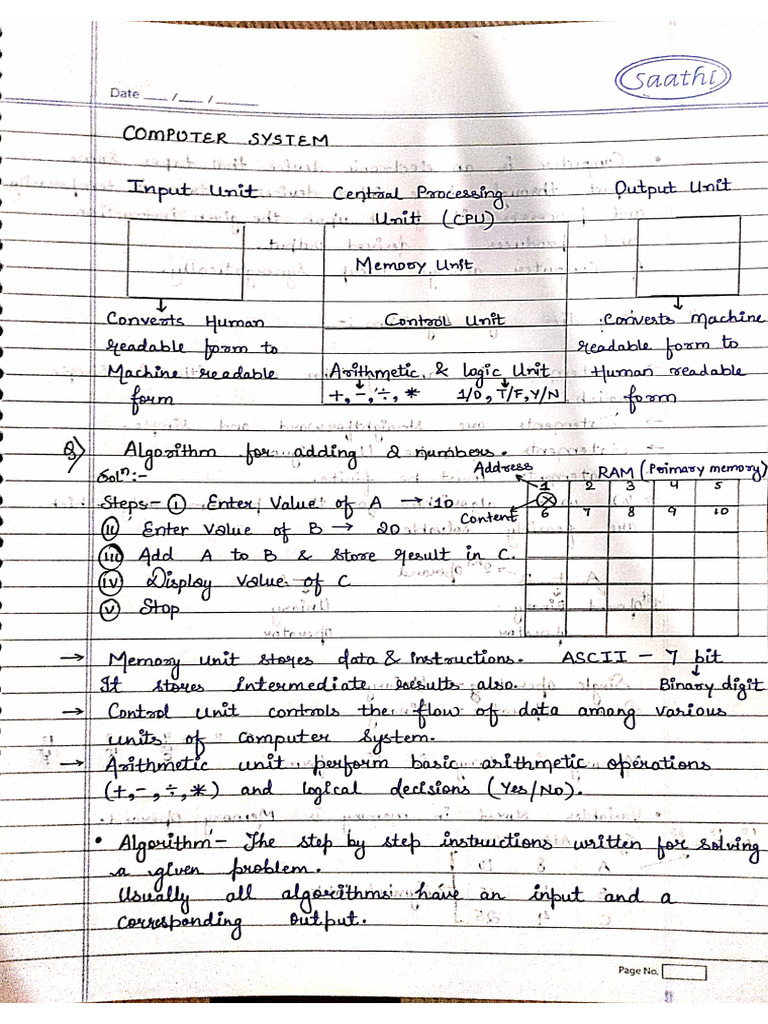 Saathi
Date __/__/____
COMPUTER SYSTEM
Input Unit Central Processing Output Unit
Unit (CPU)
Memory Unit
Converts Human Control Unit Converts Machine
readable form to readable form to
Machine readable Arithmetic & logic Unit Human readable
form +, -, ÷, * 1/0, T/F, Y/N form
Q) Algorithm for adding 2 numbers.
Soln:- Address RAM (Primary memory)
1 2 3 4 5
Steps- (i) Enter Value of A → 10
Content 6 7 8 9 10
(ii) Enter Value of B → 20
(iii) Add A to B & store result in C.
(iv) Display value of C
(v) Stop
→ Memory unit stores data & instructions. ASCII - 7 bit
It stores intermediate results also. Binary digit
→ Control unit controls the flow of data among various
units of computer system.
→ Arithmetic unit perform basic arithmetic operations
(+, -, ÷, *) and logical decisions (Yes/No).
• Algorithm - The step by step instructions written for solving
a given problem.
Usually all algorithms have an input and a
corresponding output.
Page No.